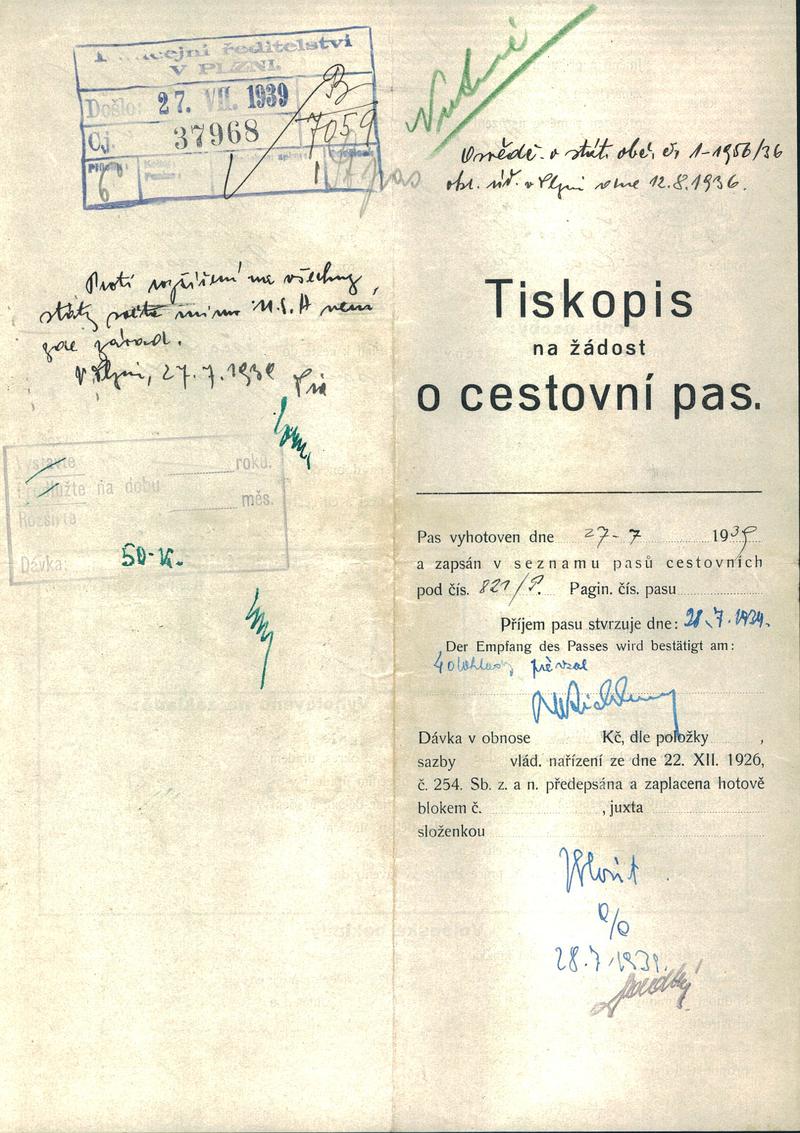 Policejní ředitelství
V PLZNI.
Došlo: 27. VII. 1939
Čj. 37968
7059
6
pas
Nutné
Osvědč. o stát. obč. čj 1-1956/36
okr. úř. v Plzni dne 12.8.1936.
Proti rozšíření na všechny
státy světa mimo U.S.A není
zde závad.
V Plzni, 27.7.1939
Vystavte roků.
Prodlužte na dobu
měs.
Rozšiřte
Dávka: 50-K.
Tiskopis
na žádost
o cestovní pas.
Pas vyhotoven dne 27-7 1939
a zapsán v seznamu pasů cestovních
pod čís. 821/P. Pagin. čís. pasu
Příjem pasu stvrzuje dne: 28.7.1939.
Der Empfang des Passes wird bestätigt am:
převzal
Dávka v obnose Kč, dle položky ,
sazby vlád. nařízení ze dne 22. XII. 1926,
č. 254. Sb. z. a n. předepsána a zaplacena hotově
blokem č. , juxta
složenkou
a/a
28.7.1939.